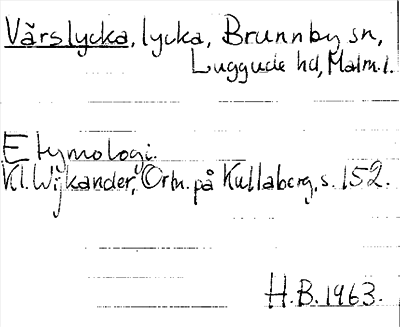 Vårslycka, lycka, Brunnby sn,
Luggude hd, Malm.l.
Etymologi.
Kl. Wijkander, Ortn. på Kullaberg, s. 152.
H.B. 1963.